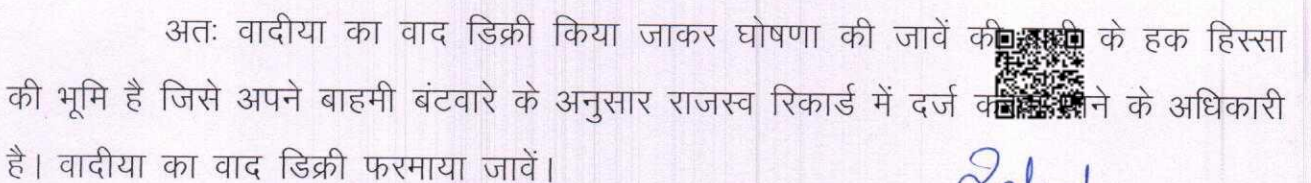 अतः वादीया का वाद डिक्री किया जाकर घोषणा की जावें की के हक हिस्सा
की भूमि है जिसे अपने बाहमी बंटवारे के अनुसार राजस्व रिकार्ड में दर्ज के अधिकारी
है। वादीया का वाद डिक्री फरमाया जावें।